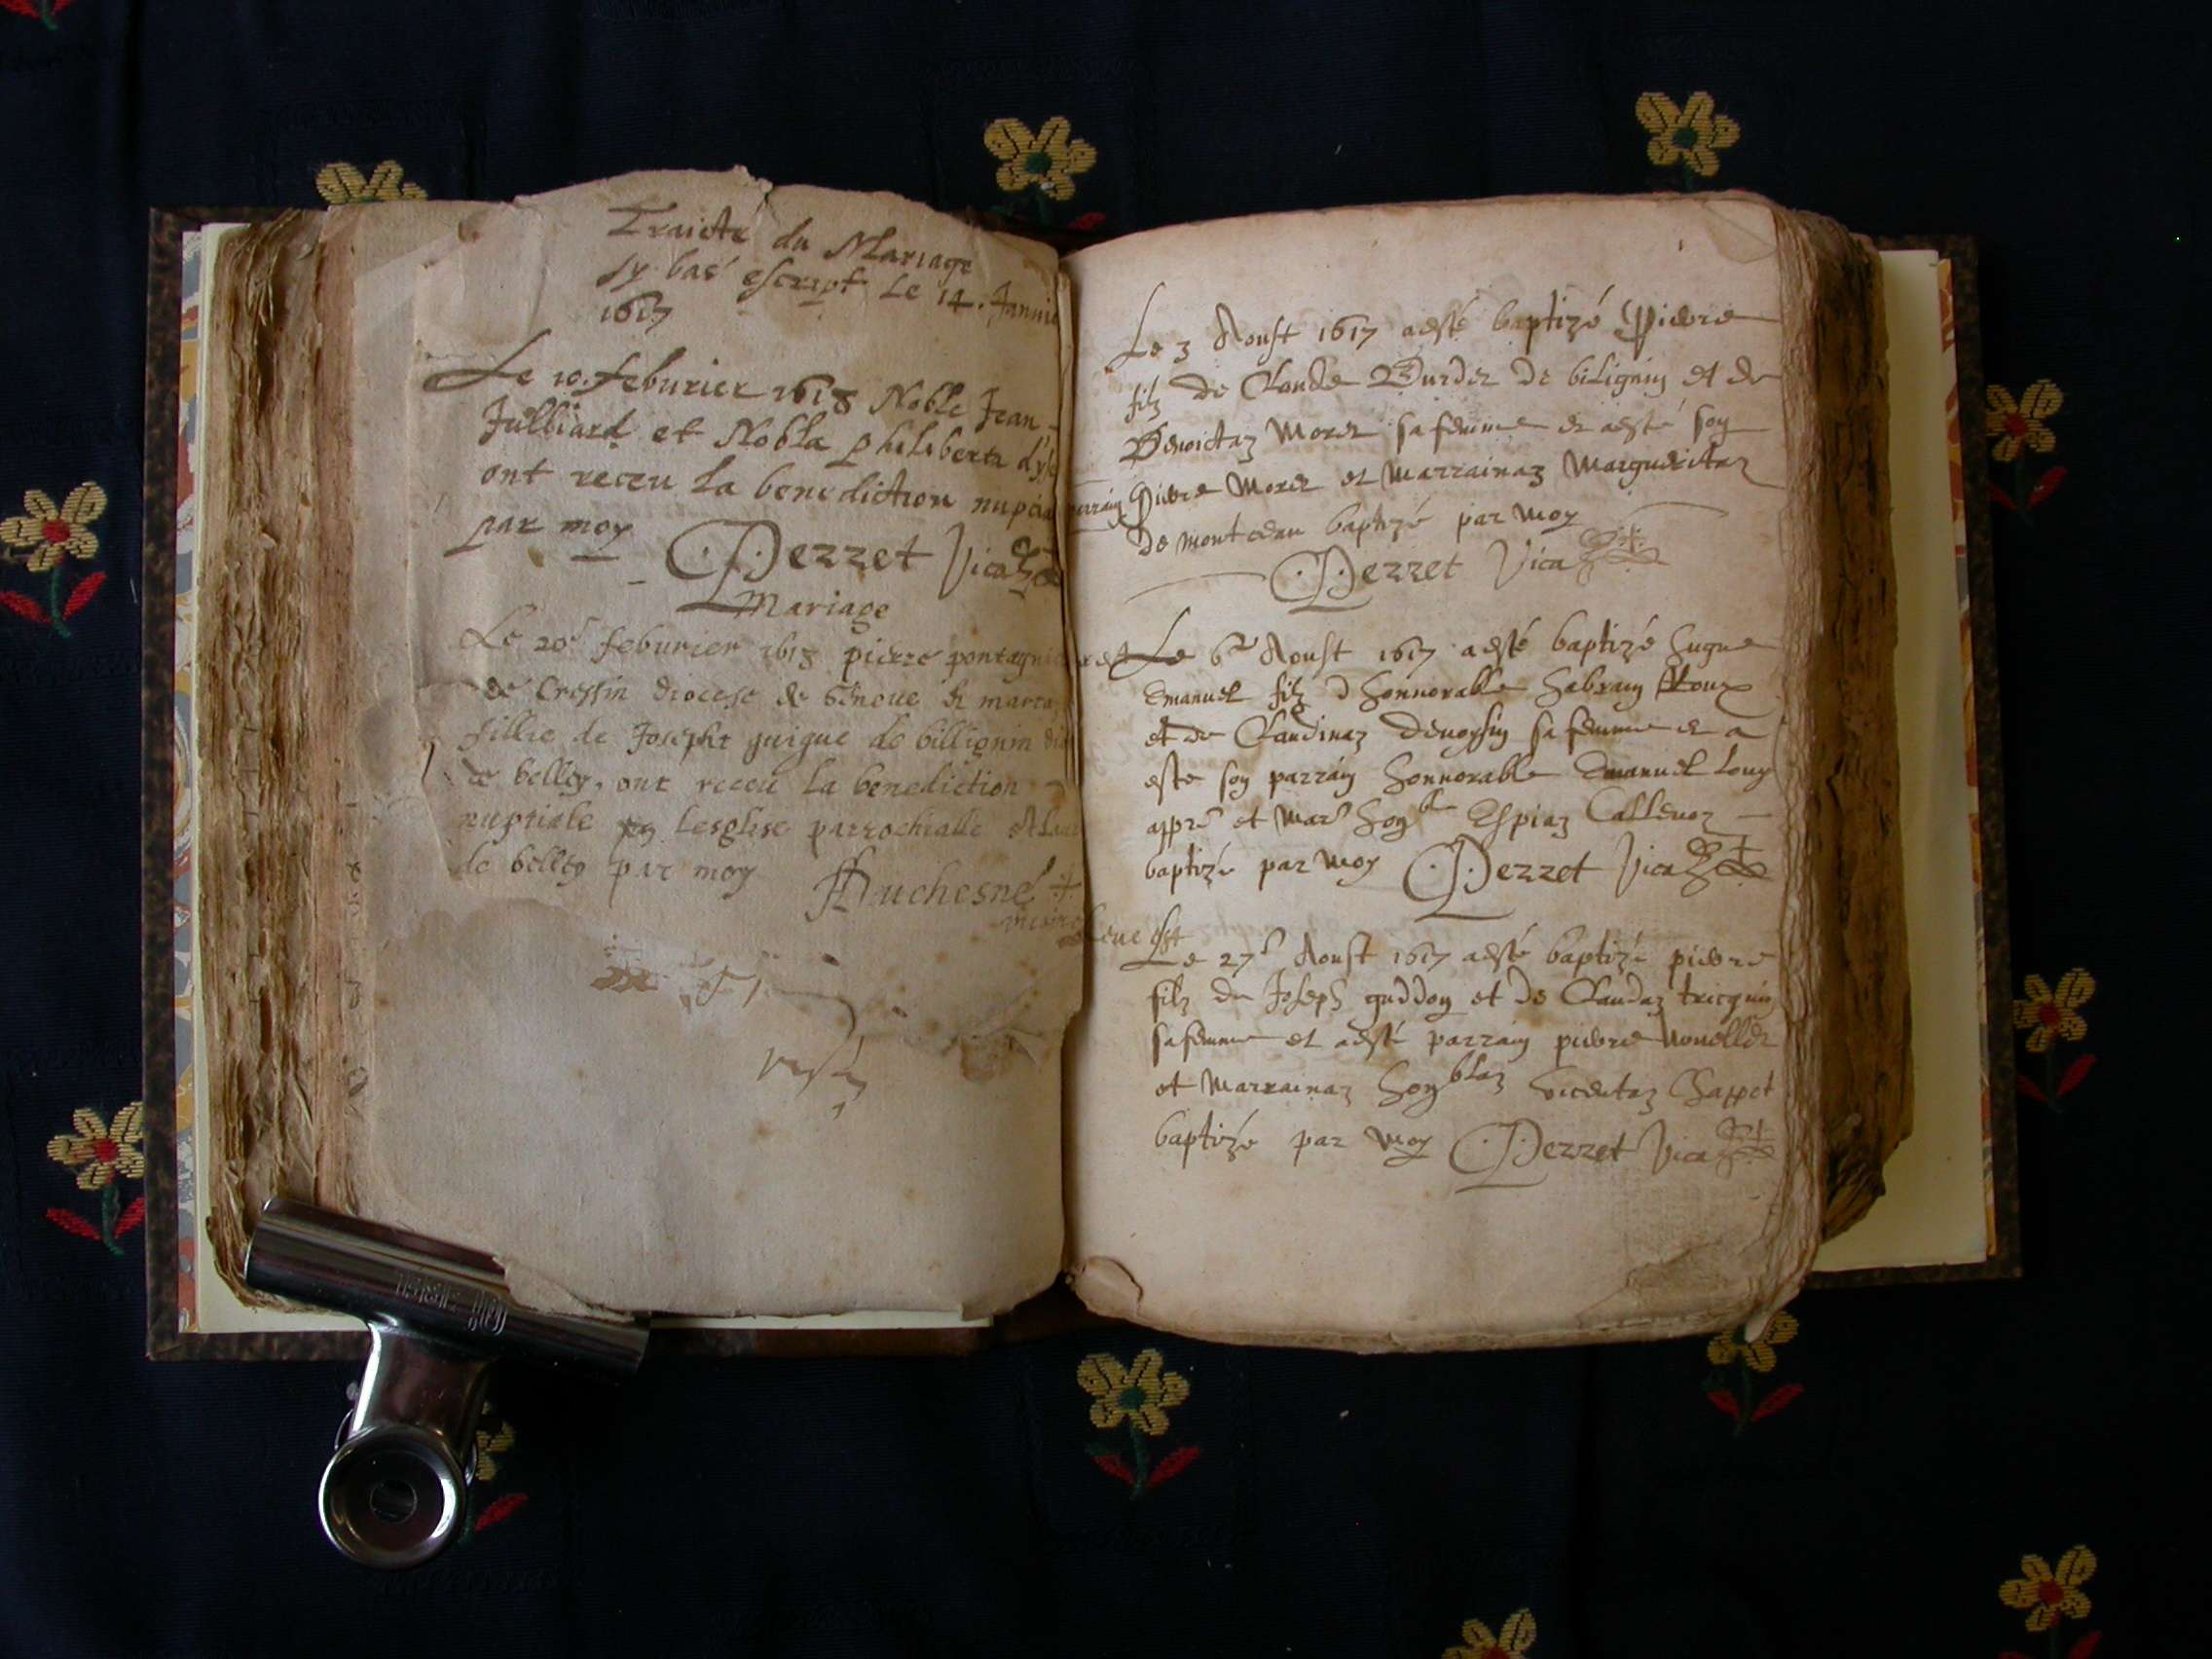 Traicté du Mariage
sy bas escript Le 14. Janvie
1617
Le 10. feburier 1618 Noble Jean
Julliard et Nobla philiberta
ont receu la benediction nupcia
par moy
Perret Vica
Mariage
Le 20e feburier 1618 pierre
de Cressin diocese de et marta
fillie de Josepht guigue de billignin
de belley, ont receu la benediction
nuptiale en lesglise parrochialle
de belley par moy
Duchesne
Le 3 Aoust 1617 a esté baptizé Pierre
filz de Claude de bilignin et de
Benoictaz Morel sa femme et a esté son
parrain Pierre Morel et Marrainaz Margueritaz
de montceau baptizé par Moy
Perret Vica
Le 6e Aoust 1617 a esté baptizé hugue
Emanuel filz d honnorable habram Roux
et de Claudinaz sa femme et a
este son parrain honnorable Emanuel
et Mare honble Callenoz
baptizé par Moy Perret Vica
Le 27e Aoust 1617 a esté baptizé pierre
filz de Joseph guddon et de Claudaz tricquin
sa femme et a esté parrain pierre
et Marrainaz honblaz vicentaz Chappet
baptizé par Moy Perret Vica